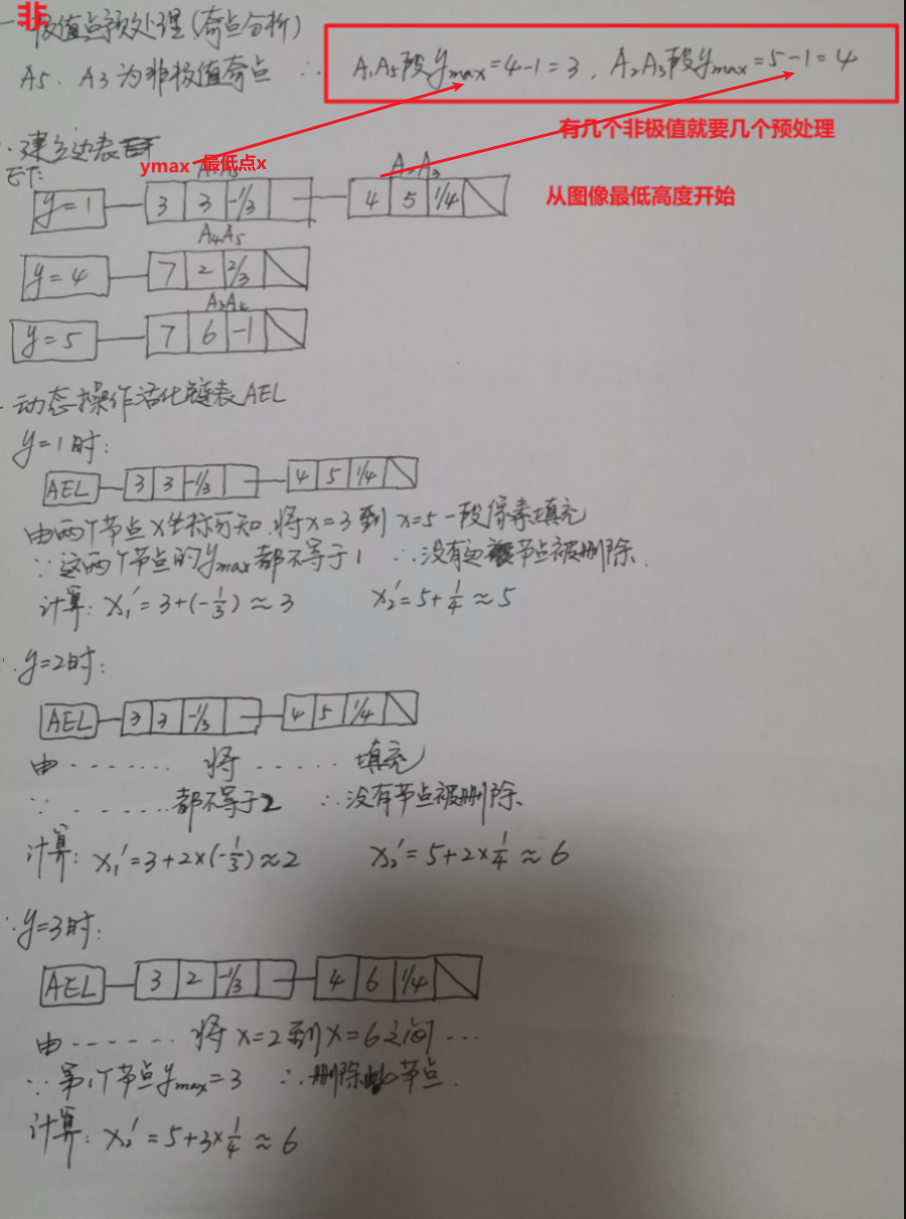 非
一极值点预处理(奇点分析)
A5、A3为非极值奇点 ∴ A₁A₅段ymax=4-1=3，A₂A₃段ymax=5-1=4
有几个非极值就要几个预处理
建立边表
ymax 最低点x
ET:
A₂A₃
y=1 3 3 -1/3 4 5 1/4
从图像最低高度开始
A₄A₅
y=4 7 2 2/3
y=5 7 6 -1
动态操作活化链表AEL
y=1时:
AEL 3 3 -1/3 4 5 1/4
由两个节点x坐标可知,将x=3到x=5一段像素填充
∵这两个节点的ymax都不等于1 ∴没有节点被删除.
计算: x₁'=3+(-1/3)≈3 x₂'=5+1/4≈5
∵y=2时:
AEL 3 3 -1/3 4 5 1/4
由······· 将····· 填充
∵ ······都不等于2 ∴没有节点被删除
计算: x₁'=3+2×(-1/3)≈2 x₂'=5+2×1/4≈6
y=3时:
AEL 3 2 -1/3 4 6 1/4
由······ 将x=2到x=6之间···
∵第1个节点ymax=3 ∴删除此节点.
计算: x₂'=5+3×1/4≈6